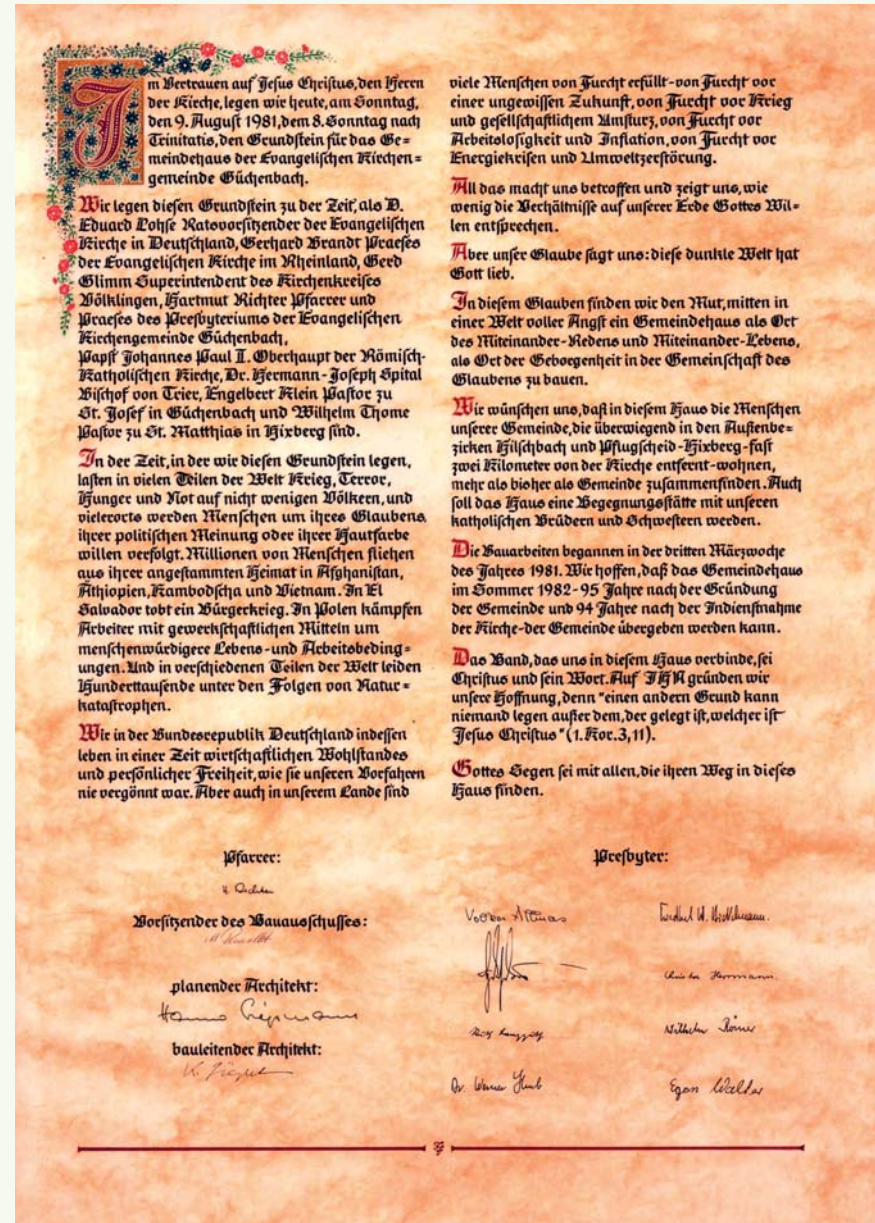 Im Vertrauen auf Jesus Christus, den Herrn
der Kirche, legen wir heute, am Sonntag,
den 9. August 1981, dem 8. Sonntag nach
Trinitatis, den Grundstein für das Ge=
meindehaus der Evangelischen Kirchen=
gemeinde Güchenbach.
Wir legen diesen Grundstein zu der Zeit, als D.
Eduard Lohse Ratsvorsitzender der Evangelischen
Kirche in Deutschland, Gerhard Brandt Praeses
der Evangelischen Kirche im Rheinland, Gerd
Glimm Superintendent des Kirchenkreises
Völklingen, Hartmut Richter Pfarrer und
Praeses des Presbyteriums der Evangelischen
Kirchengemeinde Güchenbach,
Papst Johannes Paul II. Oberhaupt der Römisch-
Katholischen Kirche, Dr. Hermann-Joseph Spital
Bischof von Trier, Engelbert Klein Pastor zu
St. Josef in Güchenbach und Wilhelm Thome
Pastor zu St. Matthias in Hixberg sind.
In der Zeit, in der wir diesen Grundstein legen,
lasten in vielen Teilen der Welt Krieg, Terror,
Hunger und Not auf nicht wenigen Völkern, und
vielerorts werden Menschen um ihres Glaubens,
ihrer politischen Meinung oder ihrer Hautfarbe
willen verfolgt. Millionen von Menschen fliehen
aus ihrer angestammten Heimat in Afghanistan,
Äthiopien, Kambodscha und Vietnam. In El
Salvador tobt ein Bürgerkrieg. In Polen kämpfen
Arbeiter mit gewerkschaftlichen Mitteln um
menschenwürdigere Lebens- und Arbeitsbeding=
ungen. Und in verschiedenen Teilen der Welt leiden
Hunderttausende unter den Folgen von Natur=
katastrophen.
Wir in der Bundesrepublik Deutschland indessen
leben in einer Zeit wirtschaftlichen Wohlstandes
und persönlicher Freiheit, wie sie unseren Vorfahren
nie vergönnt war. Aber auch in unserem Lande sind
viele Menschen von Furcht erfüllt - von Furcht vor
einer ungewissen Zukunft, von Furcht vor Krieg
und gesellschaftlichem Umsturz, von Furcht vor
Arbeitslosigkeit und Inflation, von Furcht vor
Energiekrisen und Umweltzerstörung.
All das macht uns betroffen und zeigt uns, wie
wenig die Verhältnisse auf unserer Erde Gottes Wil=
len entsprechen.
Aber unser Glaube sagt uns: diese dunkle Welt hat
Gott lieb.
In diesem Glauben finden wir den Mut, mitten in
einer Welt voller Angst ein Gemeindehaus als Ort
des Miteinander-Redens und Miteinander-Lebens,
als Ort der Geborgenheit in der Gemeinschaft des
Glaubens zu bauen.
Wir wünschen uns, daß in diesem Haus die Menschen
unserer Gemeinde, die überwiegend in den Außenbe=
zirken Hilschbach und Pflugscheid-Hixberg - fast
zwei Kilometer von der Kirche entfernt - wohnen,
mehr als bisher als Gemeinde zusammenfinden. Auch
soll das Haus eine Begegnungsstätte mit unseren
katholischen Brüdern und Schwestern werden.
Die Bauarbeiten begannen in der dritten Märzwoche
des Jahres 1981. Wir hoffen, daß das Gemeindehaus
im Sommer 1982 - 95 Jahre nach der Gründung
der Gemeinde und 94 Jahre nach der Indienstnahme
der Kirche - der Gemeinde übergeben werden kann.
Das Band, das uns in diesem Haus verbinde, sei
Christus und sein Wort. Auf IHN gründen wir
unsere Hoffnung, denn "einen andern Grund kann
niemand legen außer dem, der gelegt ist, welcher ist
Jesus Christus" (1. Kor. 3, 11).
Gottes Segen sei mit allen, die ihren Weg in dieses
Haus finden.
Pfarrer:
H. Richter
Vorsitzender des Bauausschusses:
planender Architekt:
Hanno
bauleitender Architekt:
K.
Presbyter:
Volker
Herrmann
Wilhelm Römer
Dr. Werner
Egon Walter